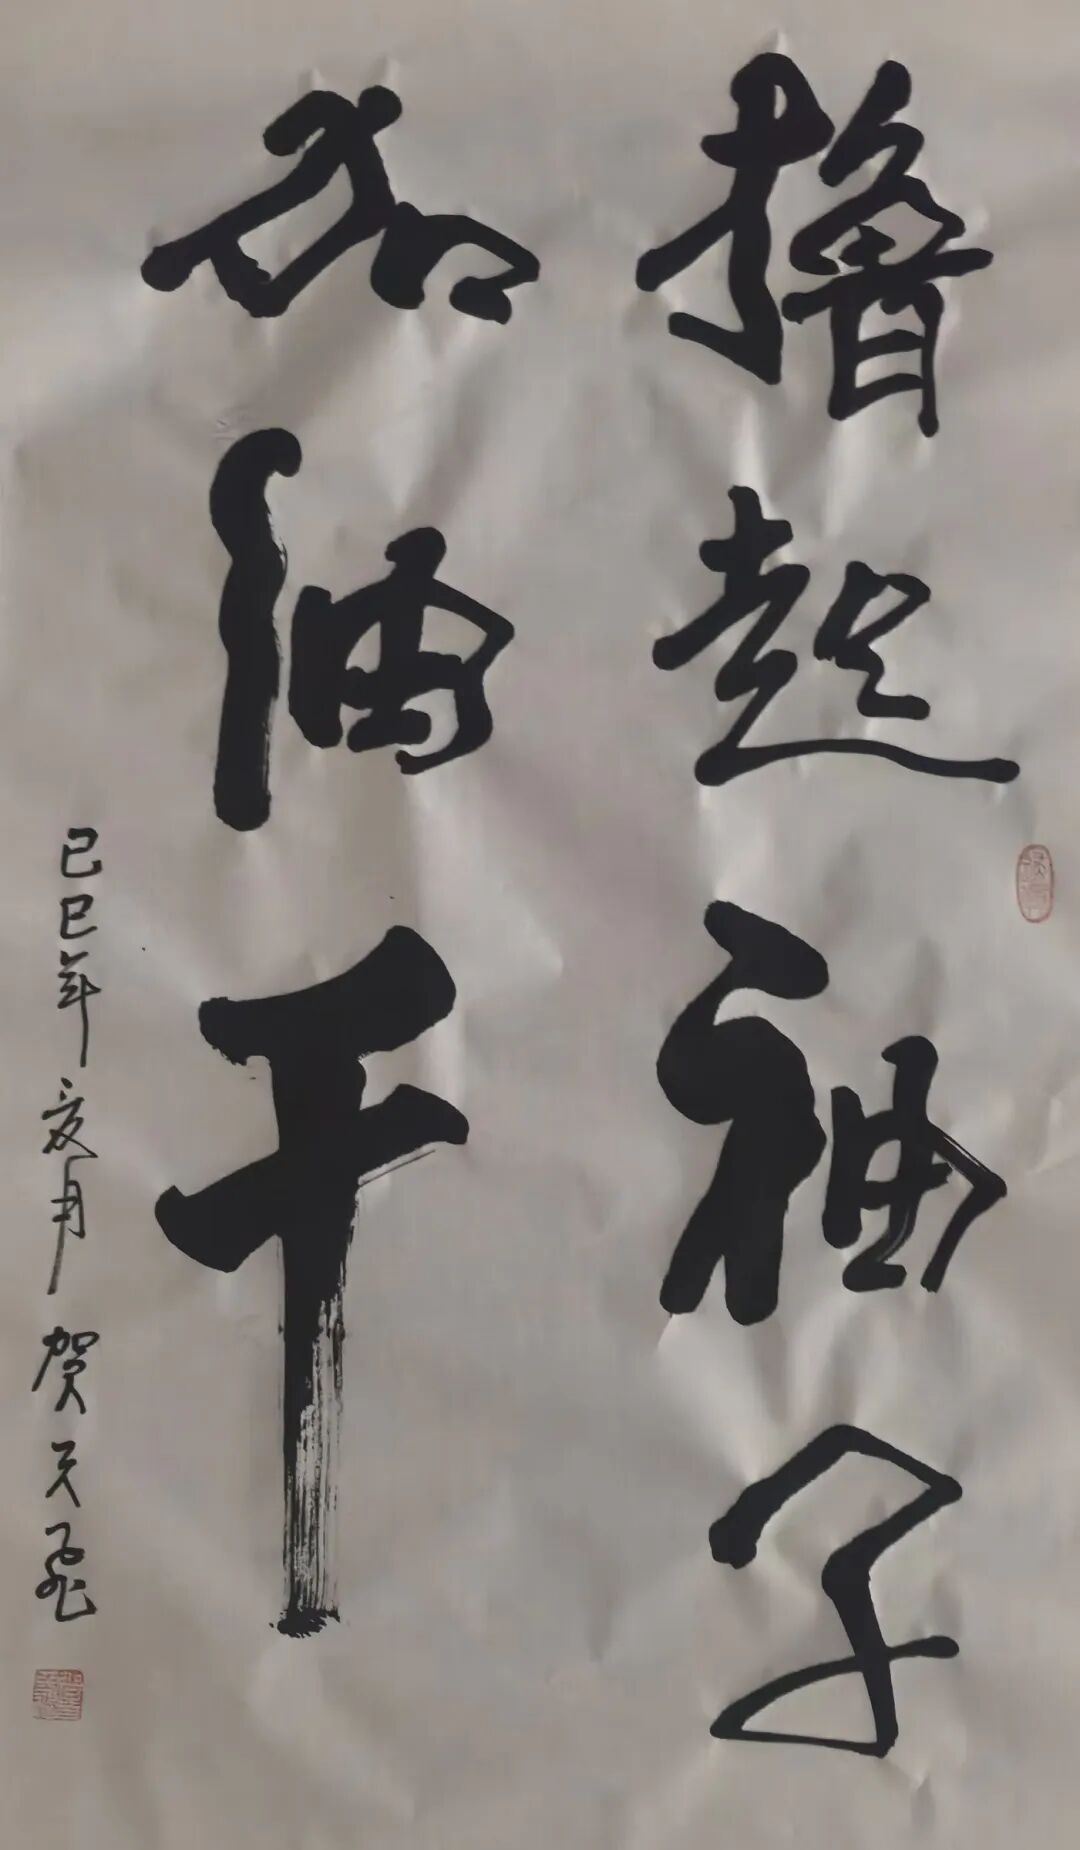 撸起袖子
加油干
己巳年亥月 贺天飞